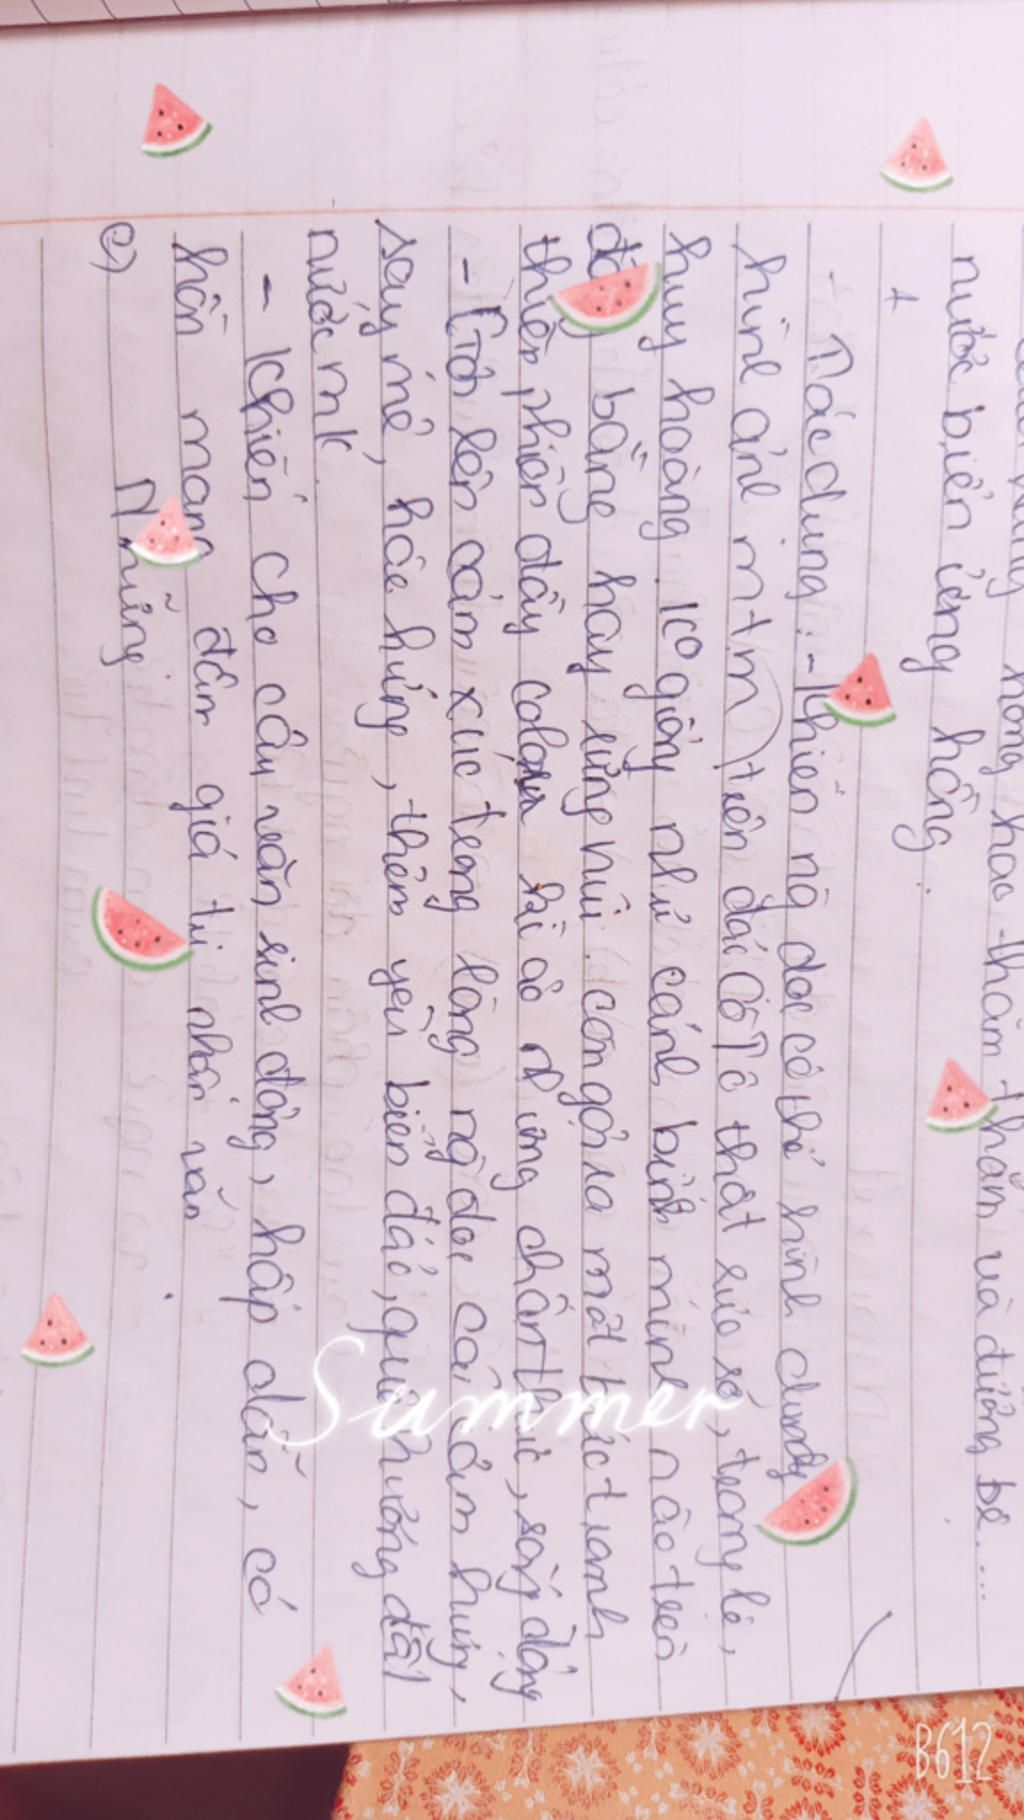 hồng hào thăm thẳm và đường bệ....
nước biển ửng hồng.
+
- Tác dụng: - Khiến ng đọc có thể hình dung
hình ảnh mtm trên đảo Cô Tô thật sức sô, trang lệ,
huy hoàng. Ko giống như cảnh bình minh nào trên
bằng hay rừng núi. còn gợi ra một bức tranh
thiên nhiên đầy color kì ảo nhưng chân thực, sống động
- Gợi lên cảm xúc trong lòng ng đọc cái cảm hứng,
say mê, háo hứng, thêm yêu biển đảo, quê hương đất
nước mk
- Khiến cho câu văn sinh động, hấp dẫn, có
hồn mang đậm giá trị nhân văn.
e) Những
Summer
B612